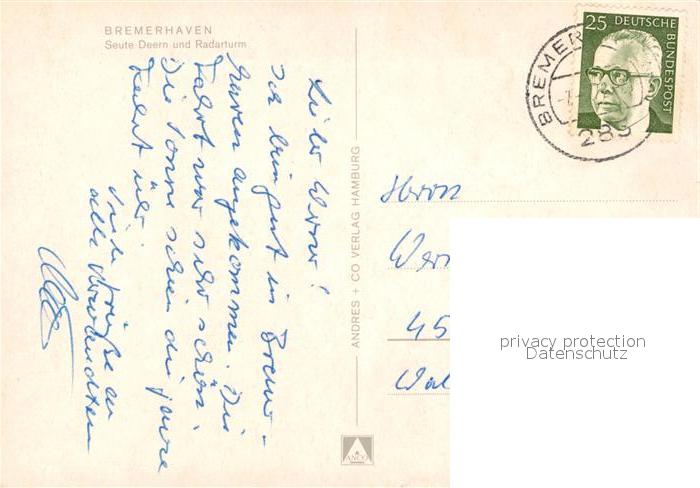 BREMERHAVEN
Seute Deern und Radarturm
Lieber Werner!
Ich bin gut in Bremer-
haven angekommen. Die
Fahrt war sehr schön.
Die Sonne schien die ganze
Fahrt über.
Viele Grüße an
alle Verwandten
ANDRES + CO VERLAG HAMBURG
ANCO
BREMER
285
25 DEUTSCHE
BUNDESPOST
Herrn
Wern
45
Wal
privacy protection
Datenschutz